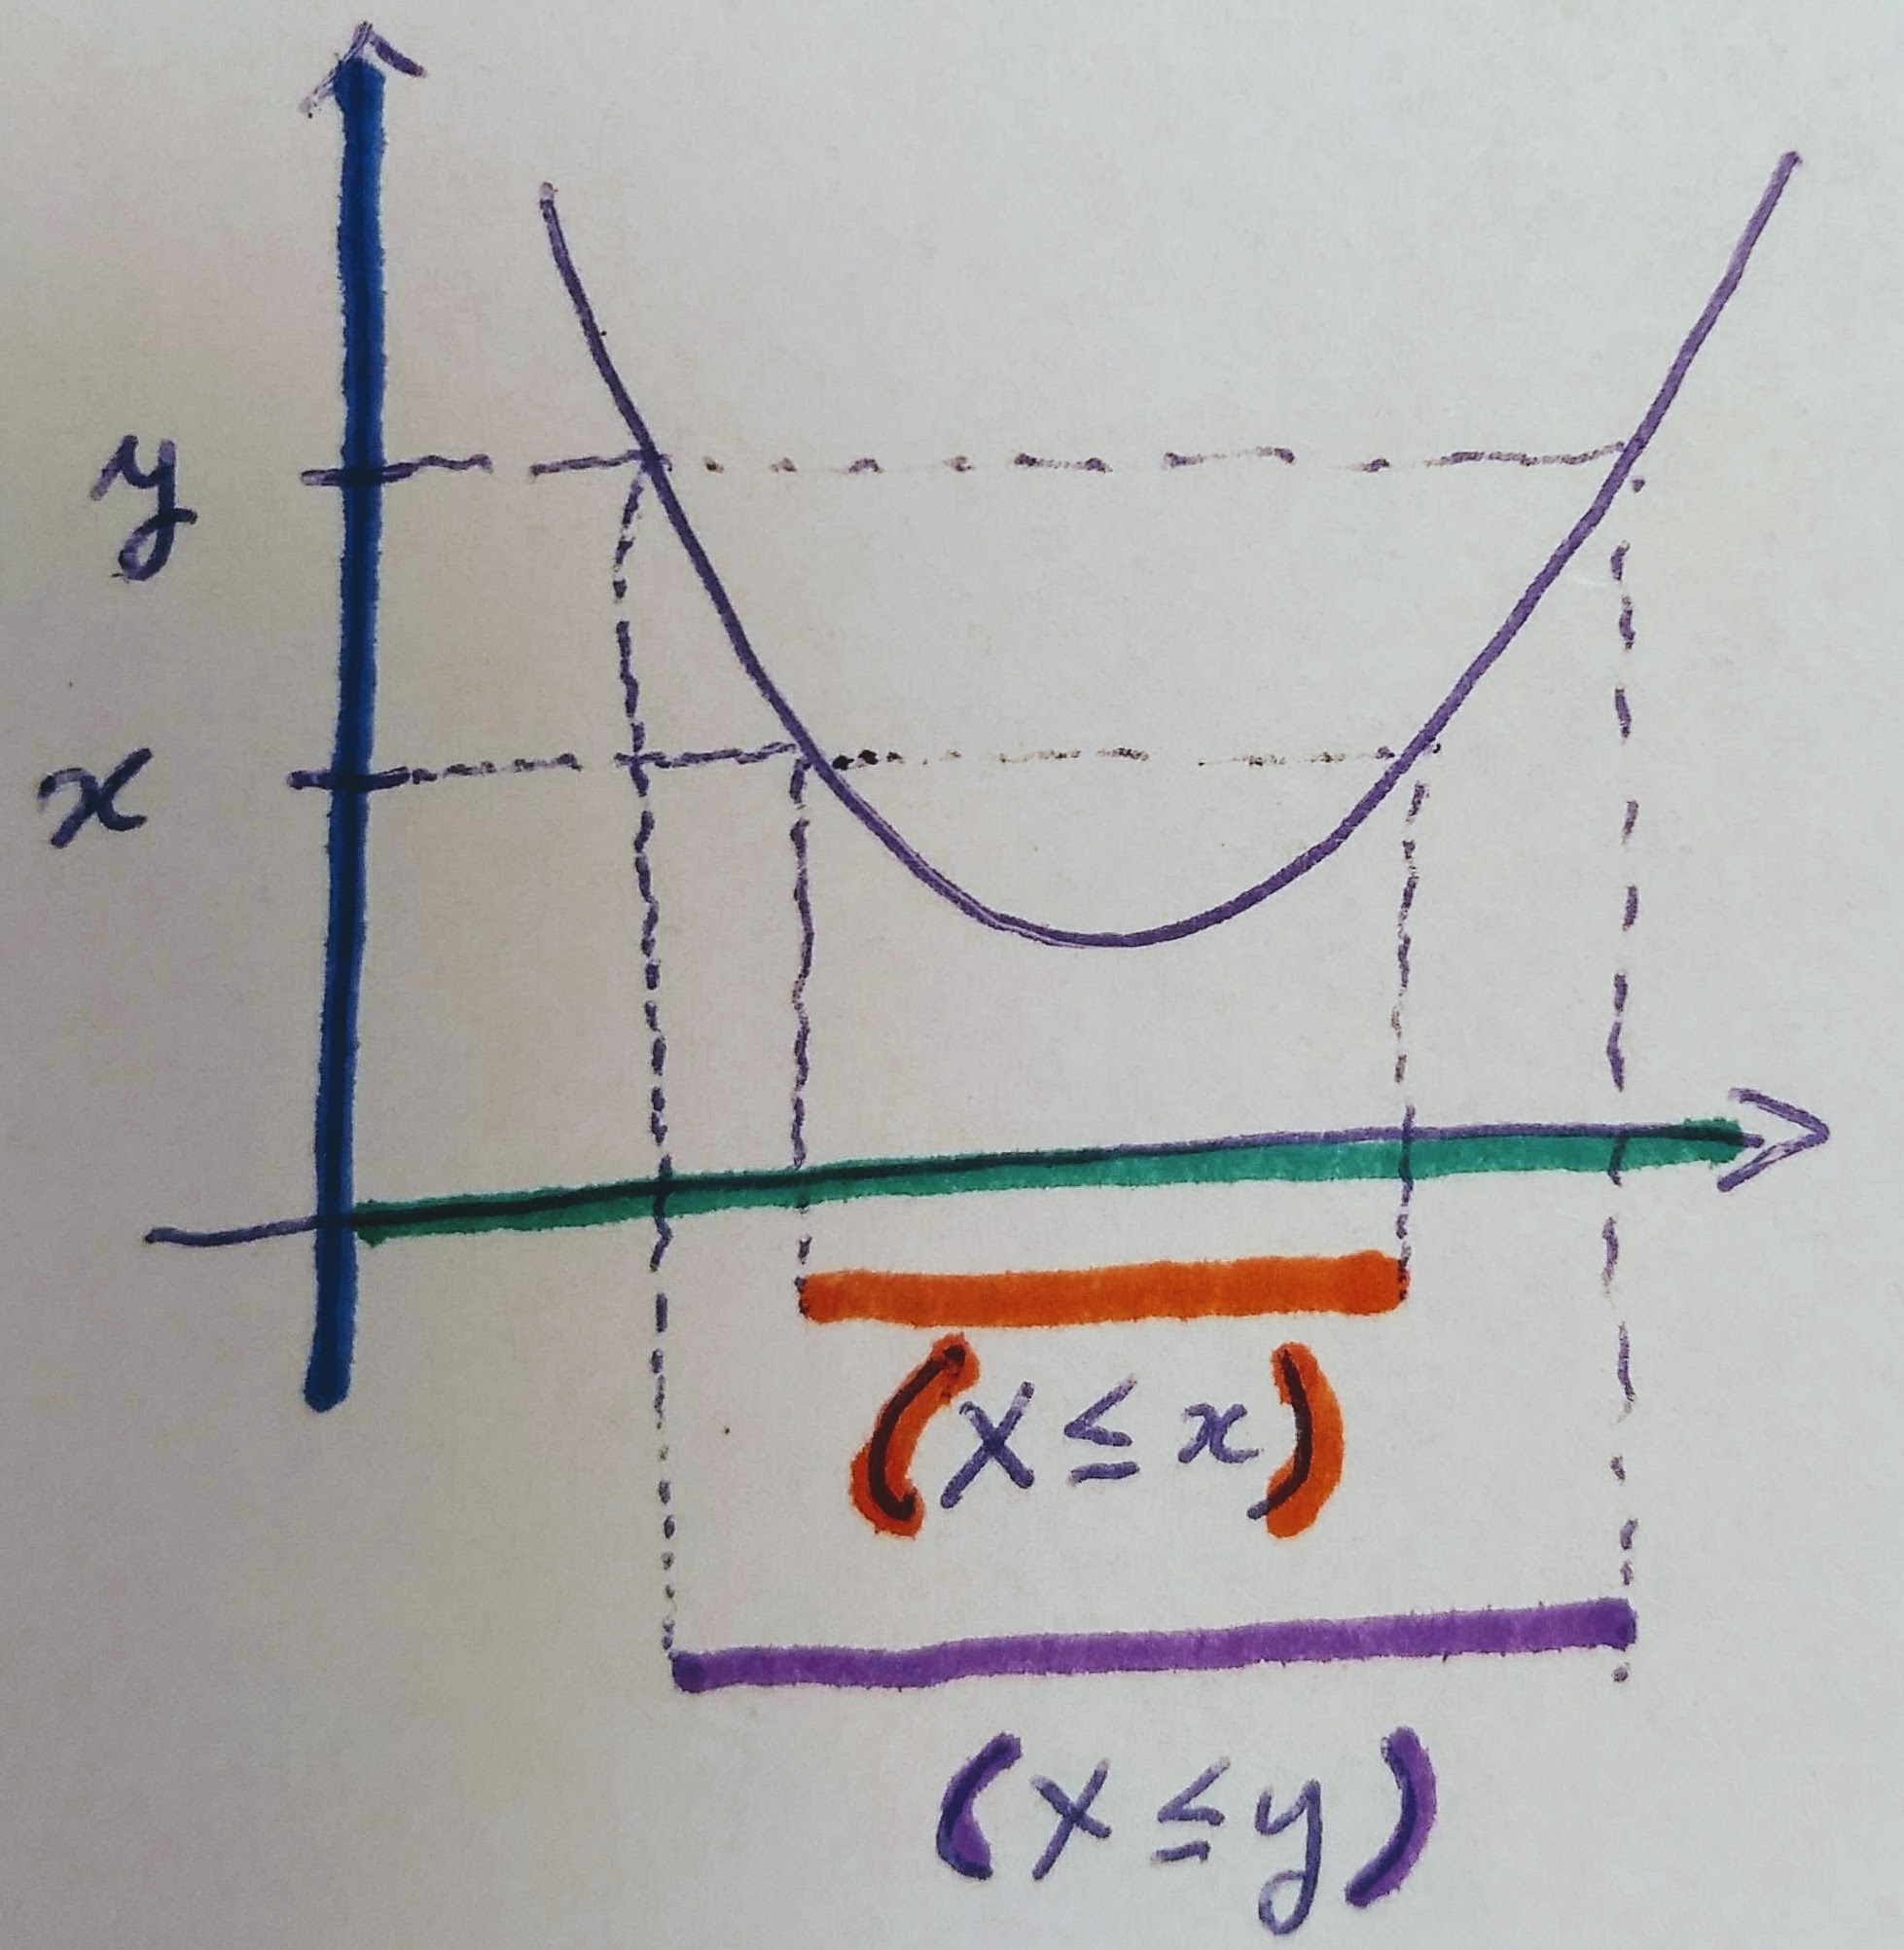 y
x
(X ≤ x)
(X ≤ y)